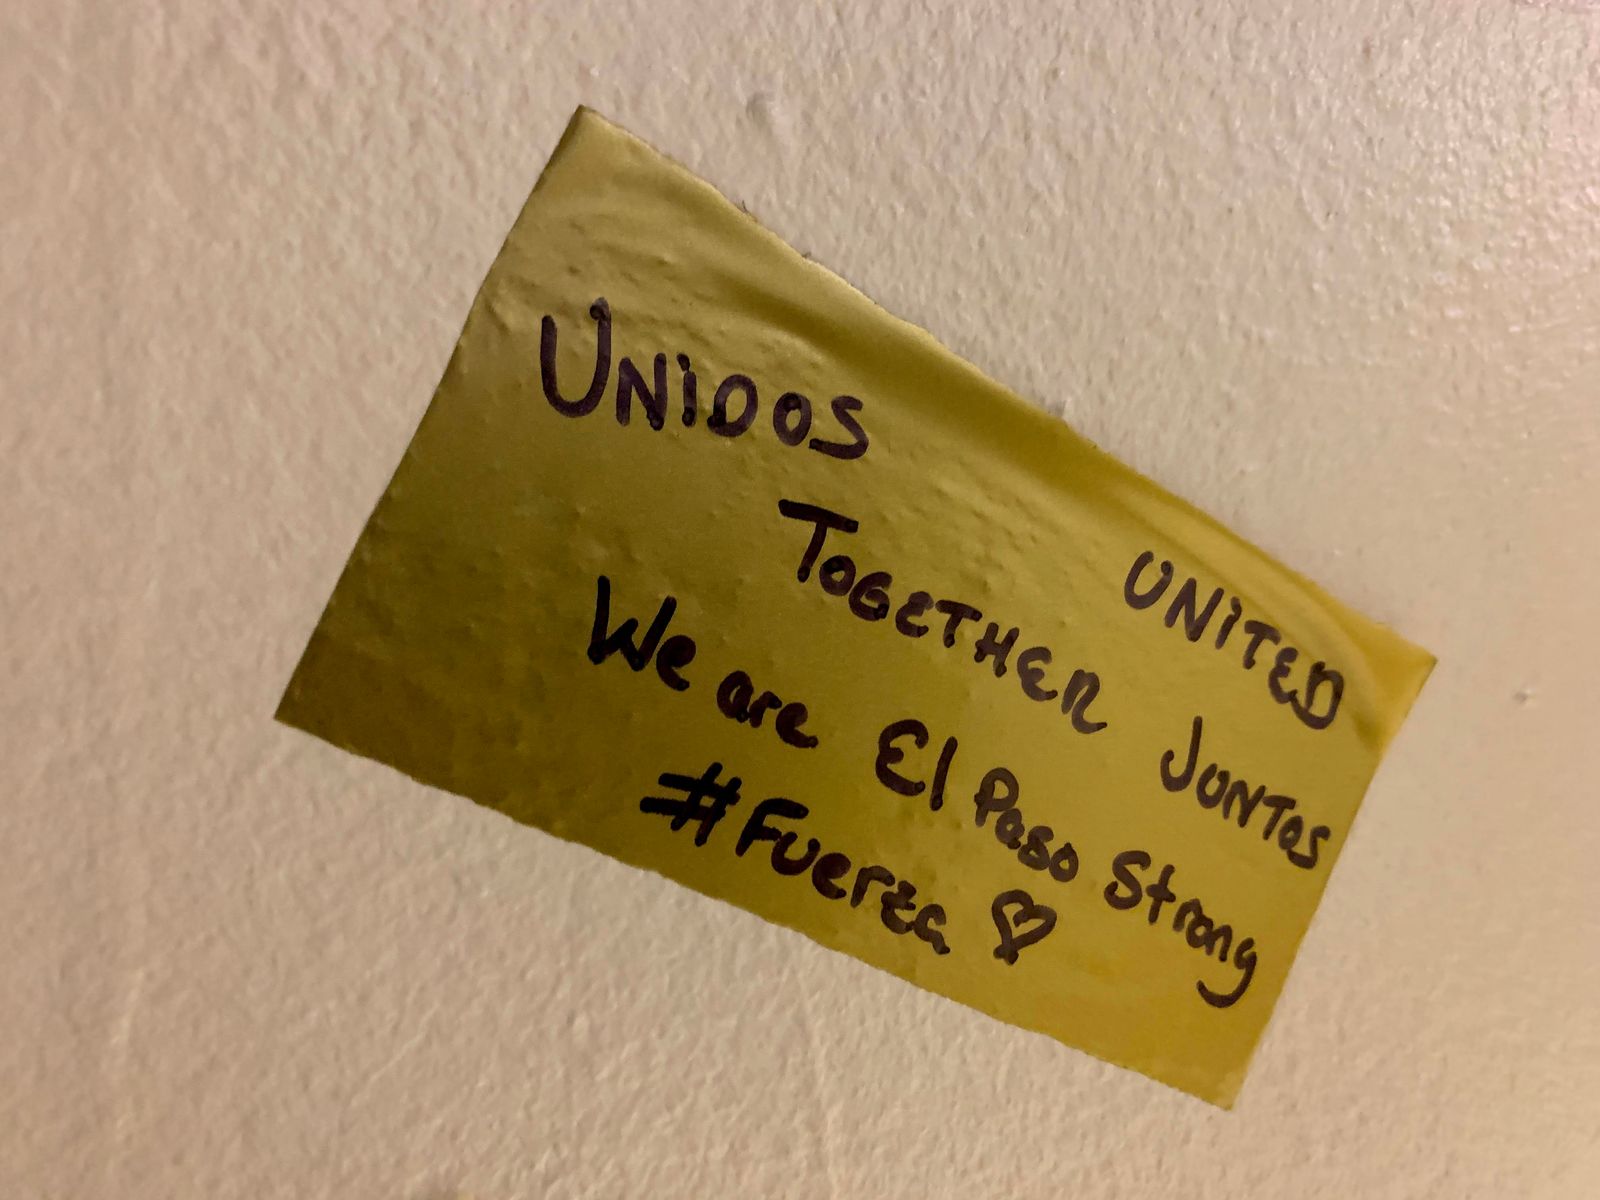 UNiDOS UNiTED
TOGETHER JUNTOS
We are El Paso Strong
#Fuerza ♡